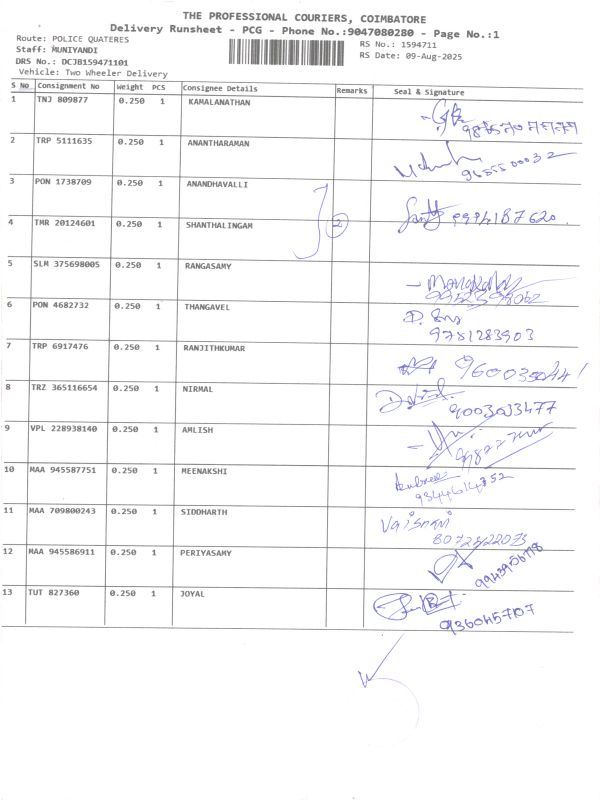 THE PROFESSIONAL COURIERS, COIMBATORE
Delivery Runsheet - PCG - Phone No.:9047080280 - Page No.:1
Route: POLICE QUATERES
Staff: MUNIYANDI
DRS No.: DCJB159471101
Vehicle: Two Wheeler Delivery
RS No.: 1594711
RS Date: 09-Aug-2025
S No Consignment No Weight PCS Consignee Details Remarks Seal & Signature
1 TNJ 809877 0.250 1 KAMALANATHAN
2 TRP 5111635 0.250 1 ANANTHARAMAN
3 PON 1738709 0.250 1 ANANDHAVALLI
2
4 TMR 20124601 0.250 1 SHANTHALINGAM
5 SLM 375698005 0.250 1 RANGASAMY
6 PON 4682732 0.250 1 THANGAVEL
9781283903
7 TRP 6917476 0.250 1 RANJITHKUMAR
8 TRZ 365116654 0.250 1 NIRMAL
9003023477
9 VPL 228938140 0.250 1 AMLISH
10 MAA 945587751 0.250 1 MEENAKSHI
11 MAA 709800243 0.250 1 SIDDHARTH
Vaisnavi
12 MAA 945586911 0.250 1 PERIYASAMY
13 TUT 827360 0.250 1 JOYAL
9360457107